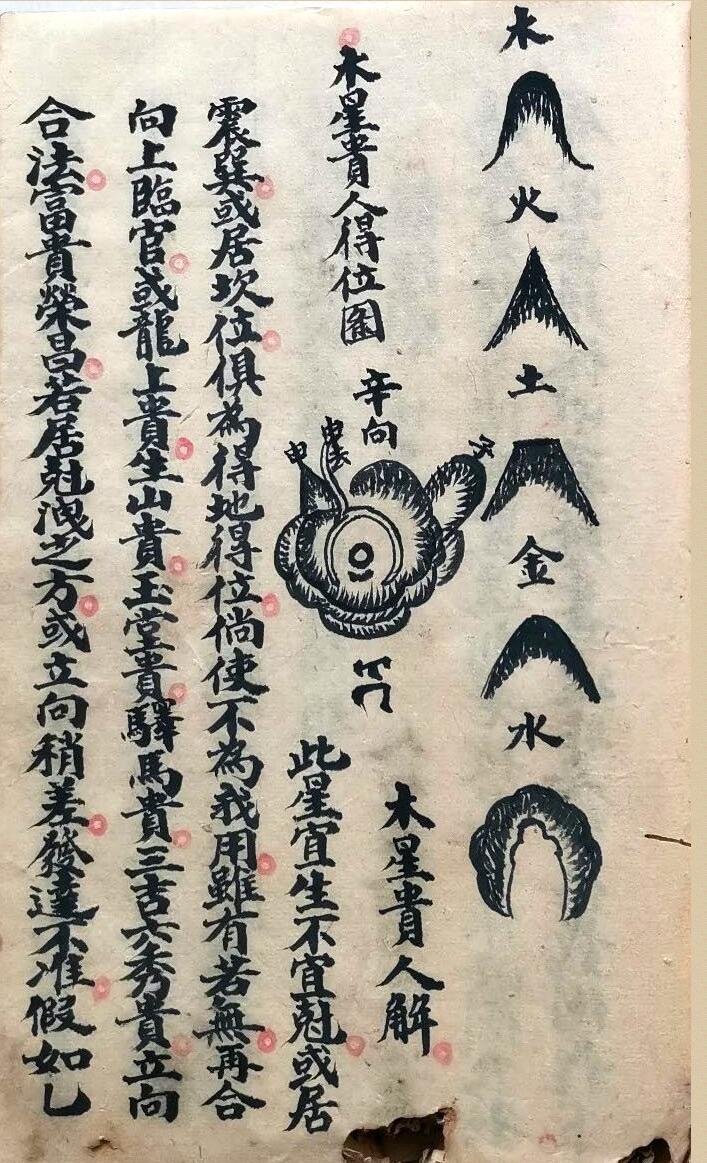 木
火
土
金
水
木星貴人得位圖
辛向
申
木星貴人解
此星宜生不宜尅或居
震巽或居坎位俱為得地得位倘使不為我用雖有若無再合
向上臨官或龍上貴生山貴玉堂貴驛馬貴三吉六秀貴立向
合法富貴榮昌若居尅洩之方或立向稍差發達不准假如乙